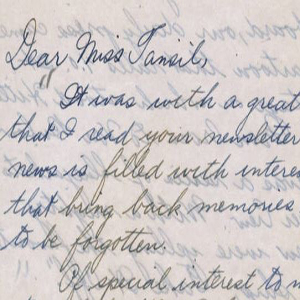 Dear Miss Tansil,
"It was with a great
that I read your newsletter
news is filled with interes
that bring back memories
to be forgotten.
Of special interest to m